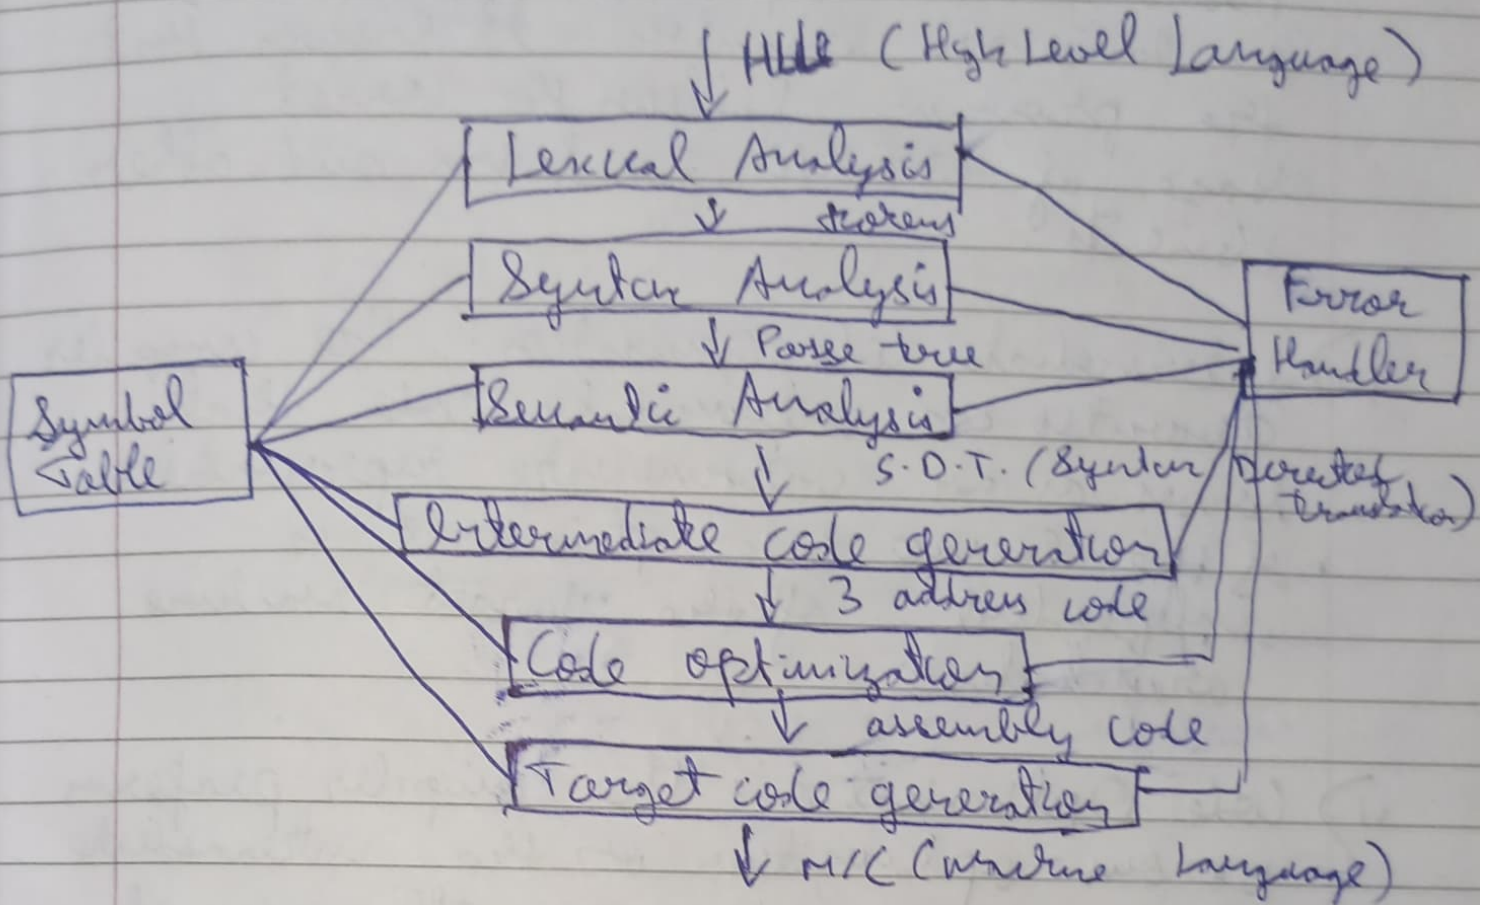 HLL (High Level Language)
Lexical Analysis
tokens
Syntax Analysis
Parse tree
Error
Handler
Semantic Analysis
Symbol
Table
S.D.T. (Syntax Directed
translation)
Intermediate code generation
3 address code
Code optimization
assembly code
Target code generation
M/C (Machine Language)